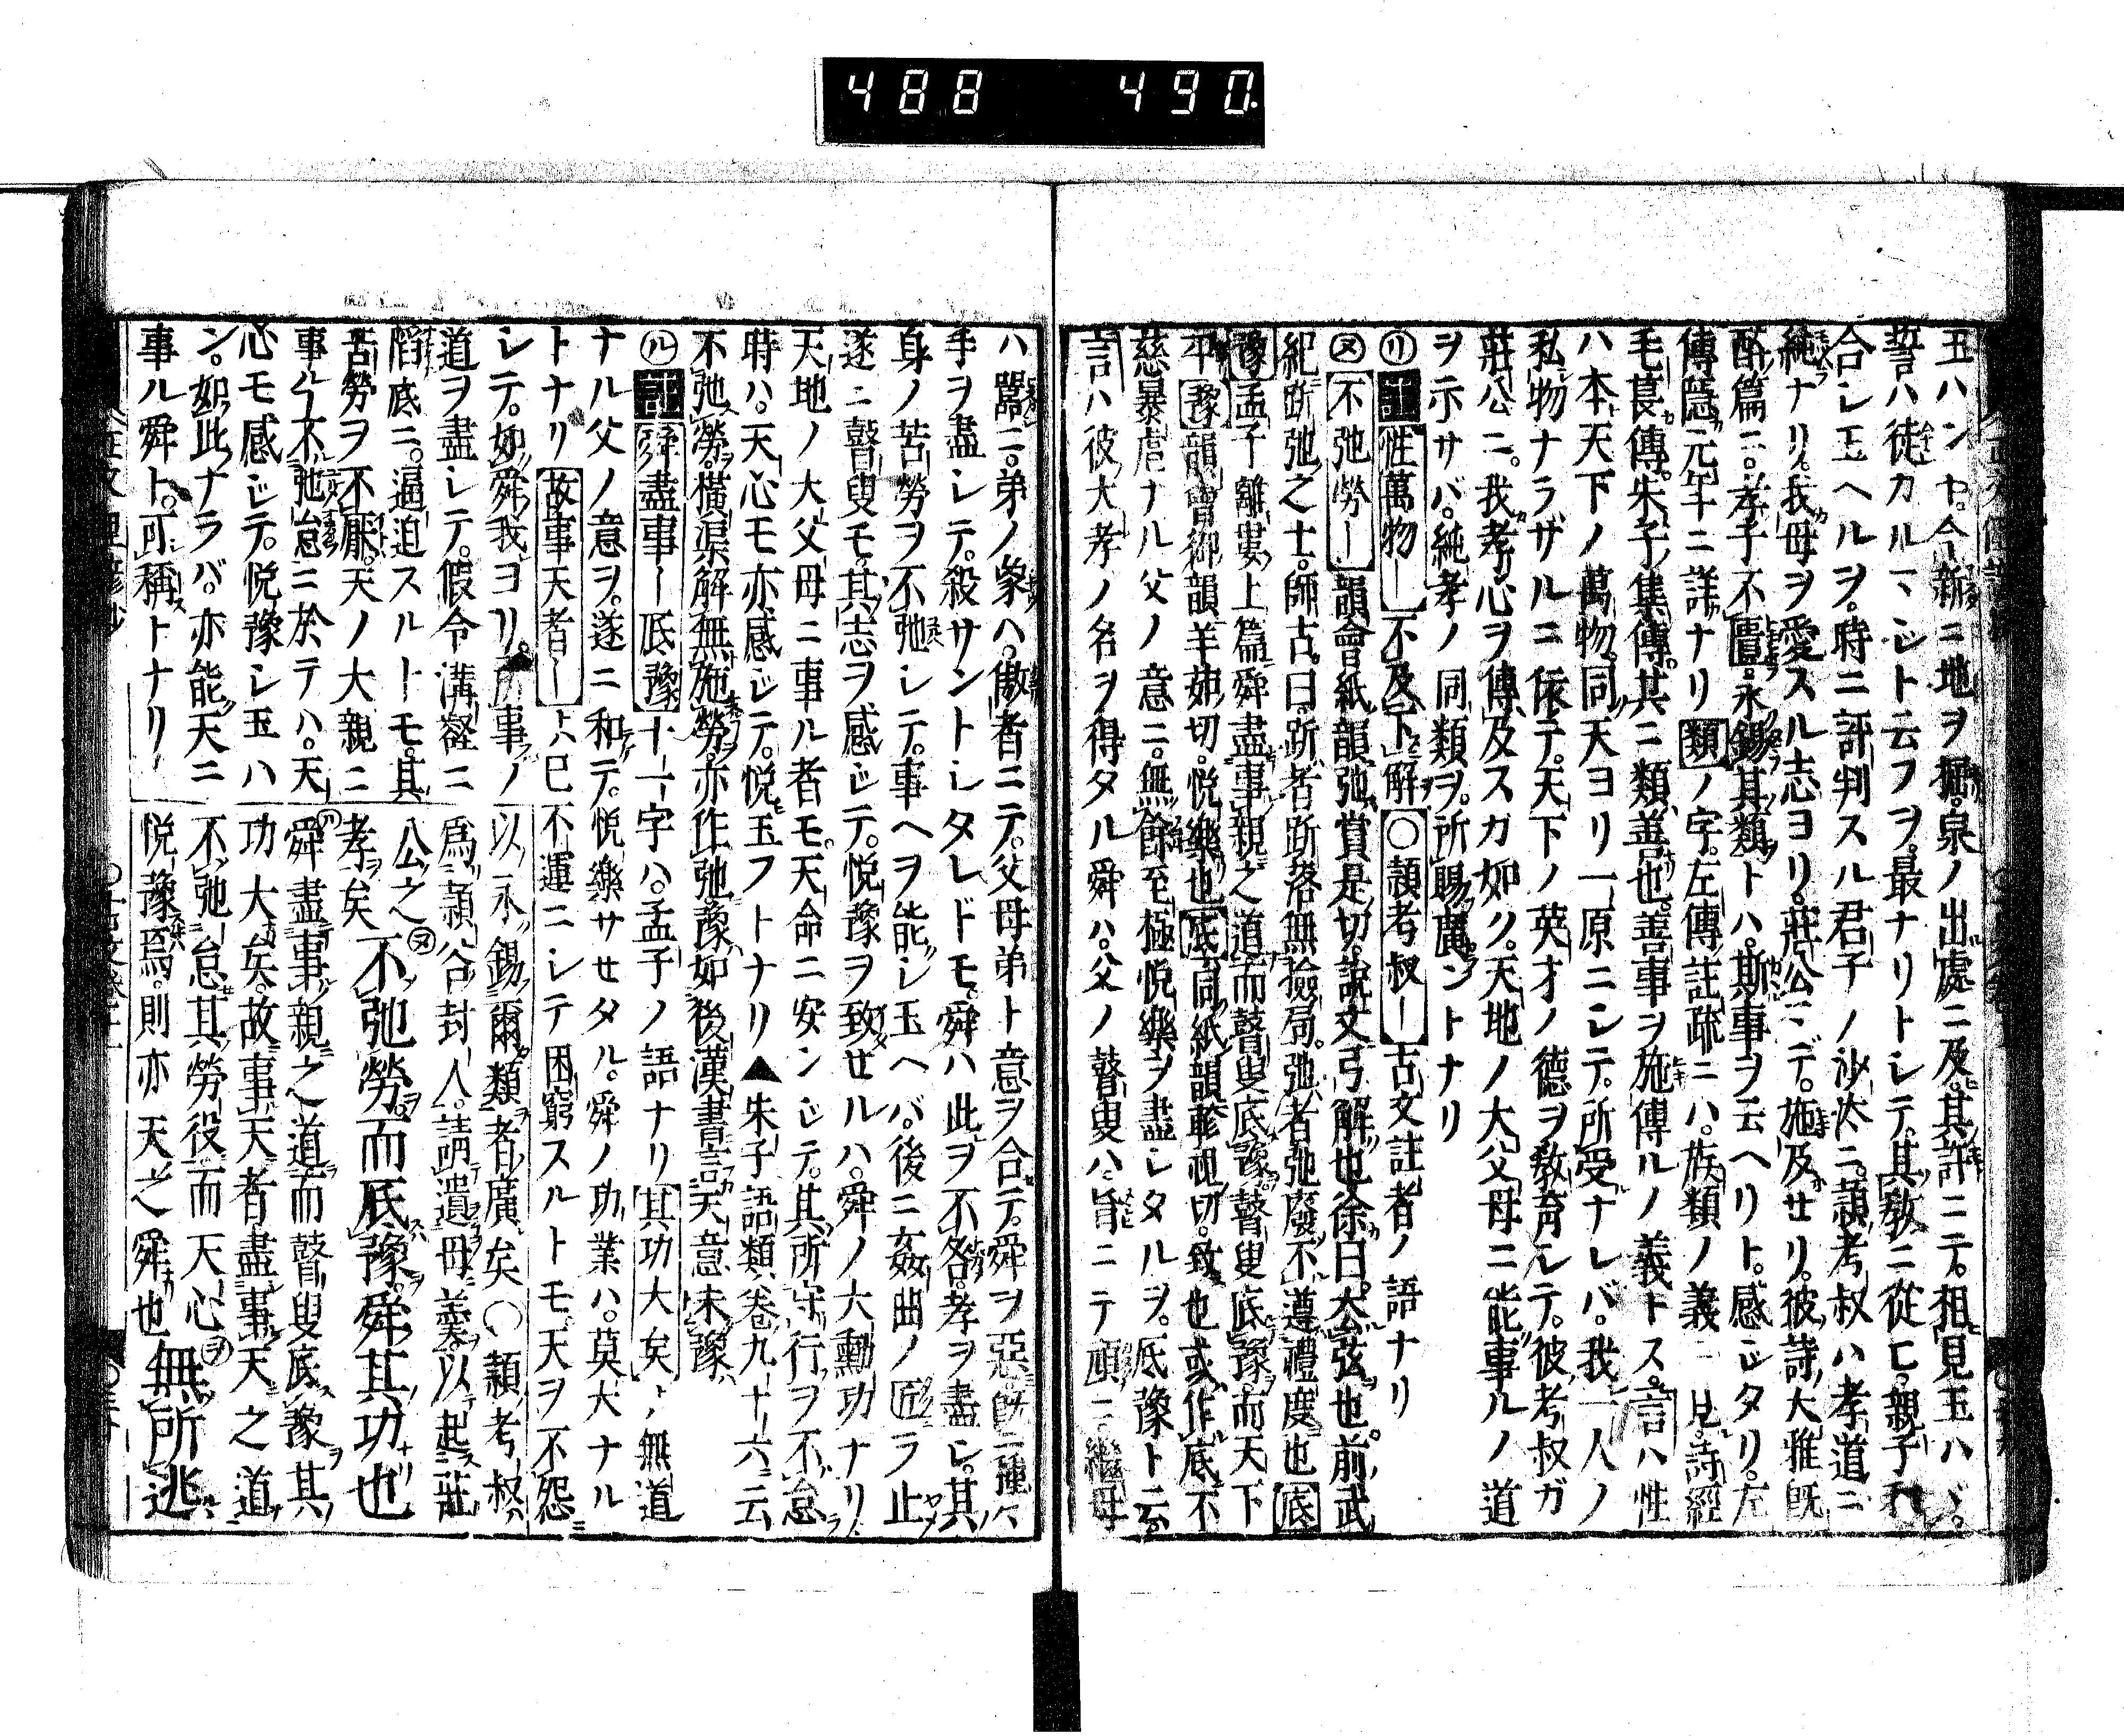 488 490
玉ハンヤ。今新ニ地ヲ掘。泉ノ出處ニ及。其許ニテ。相見玉ハヾ。
誓ハ徒カルヽシト云フヲ。最ナリトシテ。其教ニ從ヒ。親子和
合シ玉ヘルヲ。時ニ評判スル君子ノ沙汰ニ。頴考叔ハ孝道ニ
純ナリ。我母ヲ愛スル志ヨリ。莊公マデ。施及セリ。彼詩大雅既
醉篇ニ。孝子不匱。永錫其類トハ。斯事ヲ云ヘリト。感ジタリ。左
傳隱元年ニ詳ナリ 類ノ字。左傳註疏ニハ。族類ノ義ニ見。詩經
毛萇傳。朱子集傳。其ニ類善也。善事ヲ施傳ルノ義トス。言ハ性
ハ本天下ノ萬物。同天ヨリ一原ニシテ。所受ナレバ。我一人ノ
私物ナラザルニ依テ。天下ノ英才ノ德ヲ教育シテ。彼考叔ガ
莊公ニ。我孝心ヲ傳及スガ如ク。天地ノ大父母ニ能事ルノ道
ヲ示サバ。純孝ノ同類ヲ。所賜廣ントナリ
㋷註性萬物― 不及下解 ○頴考叔― 古文註者ノ語ナリ
㋦不弛勞― 韻會紙韻。弛賞是切。說文弓解也。徐曰。去弦也。前武
紀跅弛之士。師古曰。跅者跅落無檢局。弛者弛廢不遵禮度也 底
豫孟子離婁上篇舜盡事親之道而瞽叟底豫。瞽叟底豫而天下
平 豫韻會御韻羊茹切。悅樂也 底同紙韻軫視切。致也或作底不
慈暴虐ナル父ノ意ニ。無餘至極悅樂ヲ盡シタルヲ。底豫ト云。
言ハ彼大孝ノ名ヲ得タル舜ハ。父ノ瞽叟ハ。盲ニテ頑ニ。繼母
ハ嚚ニ。弟ノ象ハ。傲者ニテ。父母弟ト意ヲ合テ。舜ヲ惡ミ。種々
手ヲ盡シテ。殺サントシタレドモ。舜ハ此ヲ不咎。孝ヲ盡シ。其
身ノ苦勞ヲ不弛シテ。事ヘヲ能シ玉ヘバ。後ニ姦曲ノ匠ラ止
遂ニ瞽叟モ。其志ヲ感ジテ。悅豫ヲ致セルハ。舜ノ大勳功ナリ。
天地ノ大父母ニ事ル者モ。天命ニ安ンジテ。其所守行ヲ不怠
時ハ。天心モ亦感ジテ。悅玉フトナリ▲朱子語類卷九十六ニ云
不弛勞。橫渠解無施勞。亦作弛。豫如後漢書言天意未豫
㋸註舜盡事―底豫 十一字ハ。孟子ノ語ナリ 其功大矣ト。無道
ナル父ノ意ヲ。遂ニ和テ。悅樂サセタル。舜ノ功業ハ。莫大ナル
トナリ 故事天者― トハ已不運ニシテ困窮スルトモ。天ヲ不怨
シテ。如舜我ヨリ。所事ノ
道ヲ盡シテ。假令溝壑ニ
陷底ニ。逼迫スルトモ。其
苦勞ヲ不厭。天ノ大親ニ
事ルヿ不弛怠ニ於テハ。天
心モ感ジテ。悅豫シ玉ハ
ン。如此ナラバ。亦能天ニ
事ル舜ト。可稱トナリ
以永錫爾類者廣矣○頴考叔
爲頴谷封人。請遺母羹。以起莊
公之孝矣 ㋦不弛勞。而底豫。舜其功也
㋸舜盡事親之道。而瞽叟底豫。其
功大矣。故事天者。盡事天之道
不弛怠其勞役。而天心
悅豫焉。則亦天之舜也 ㋾無所逃